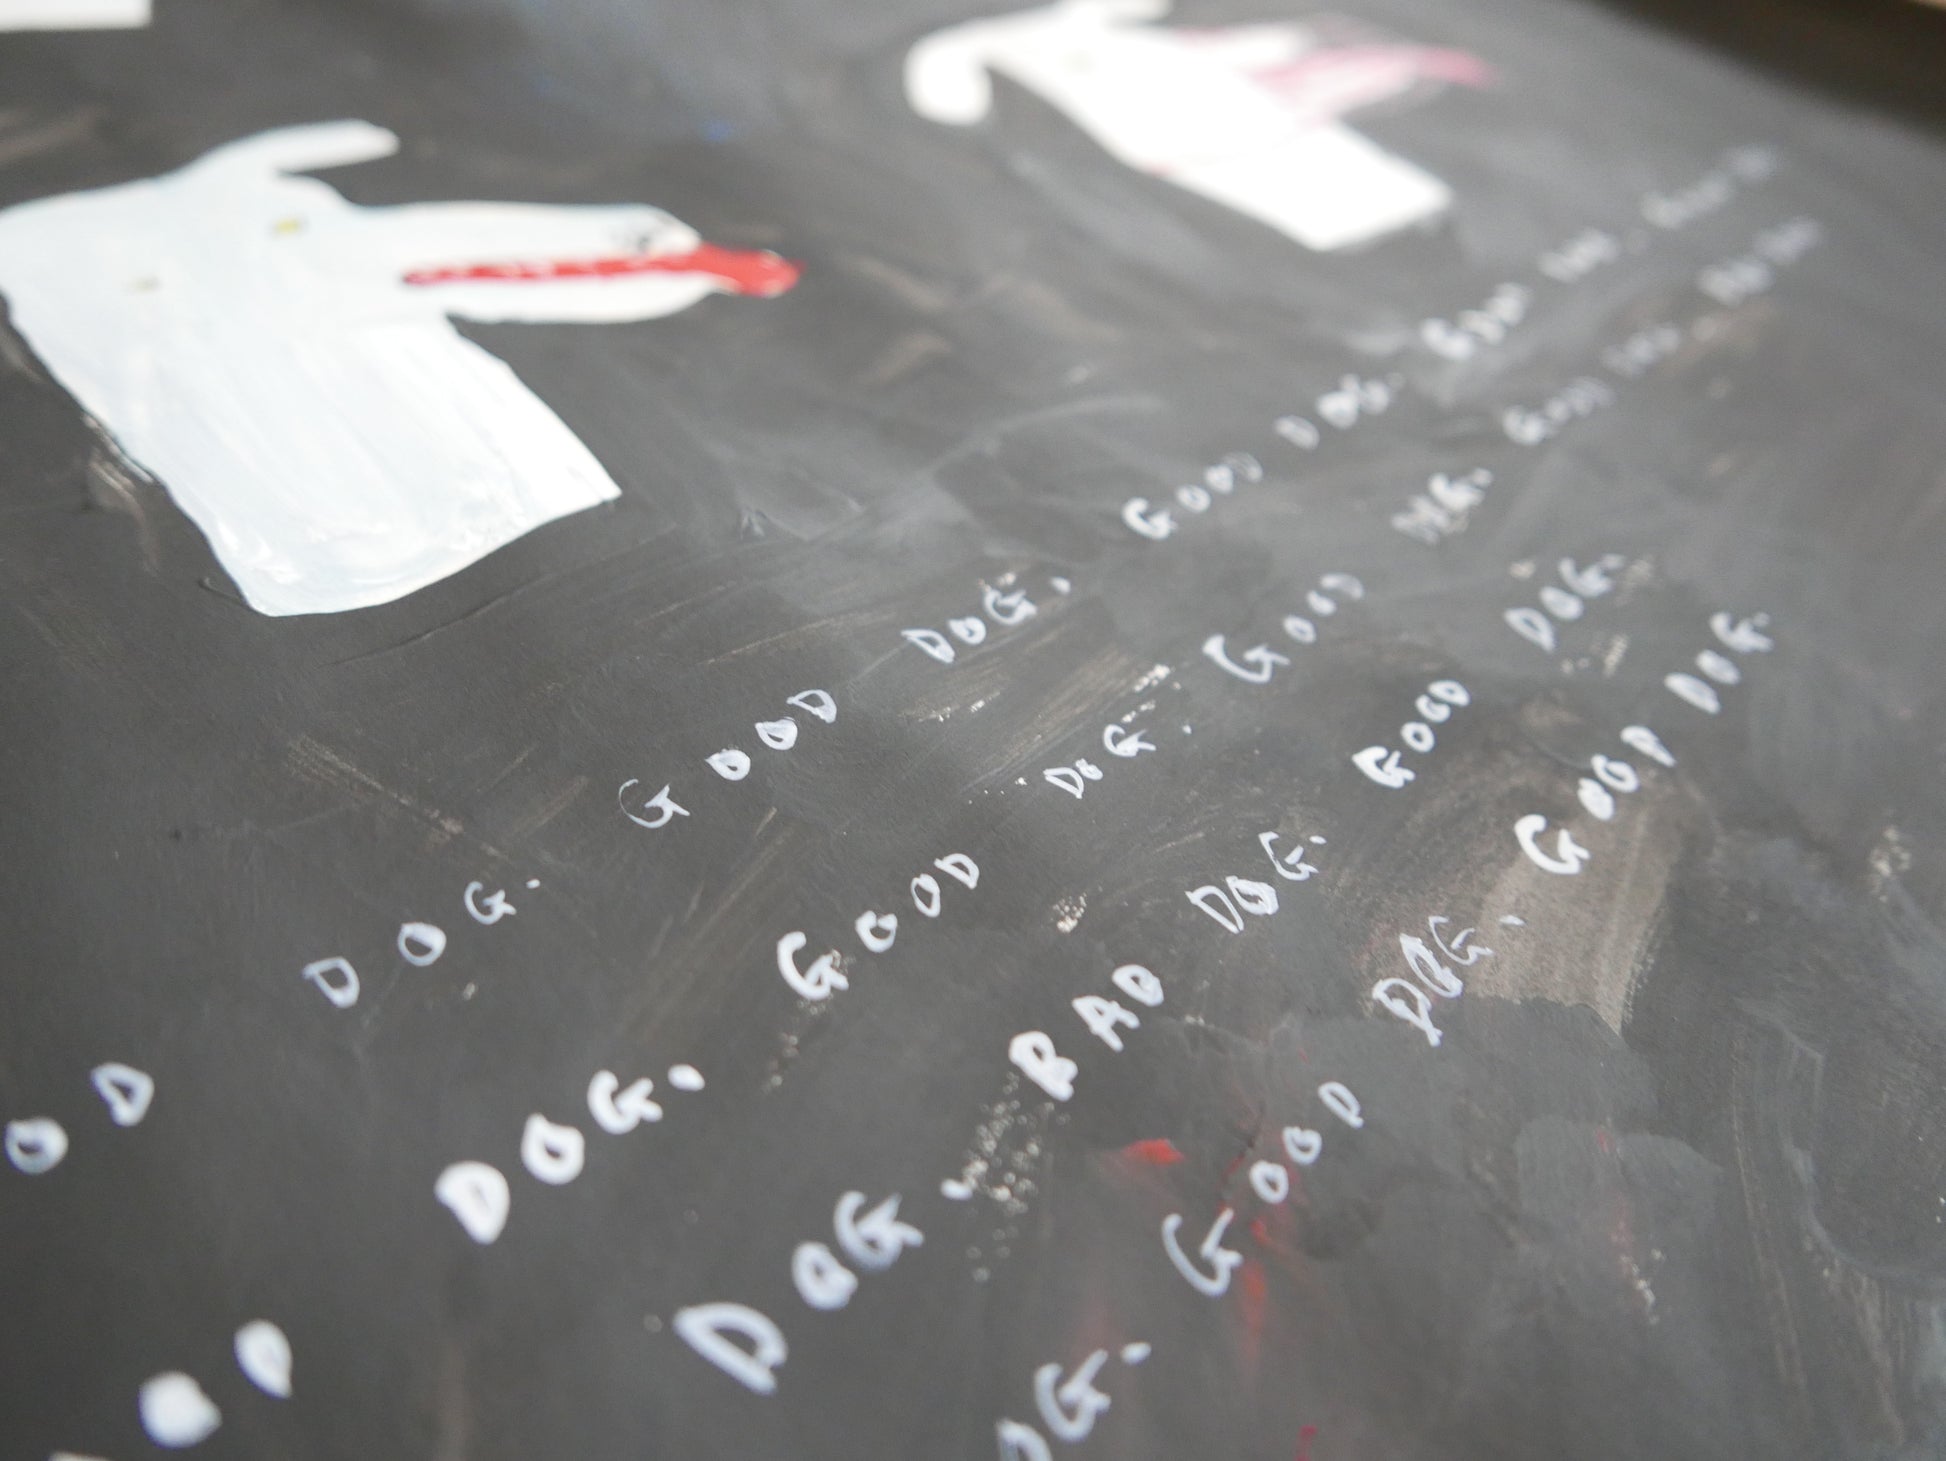 OD DOG. GOOD DOG. GOOD DOG. GOOD
OD DOG. GOOD DOG. GOOD DOG. GOOD
DOG. BAD DOG. GOOD DOG.
OG. GOOD DOG. GOOD DOG.